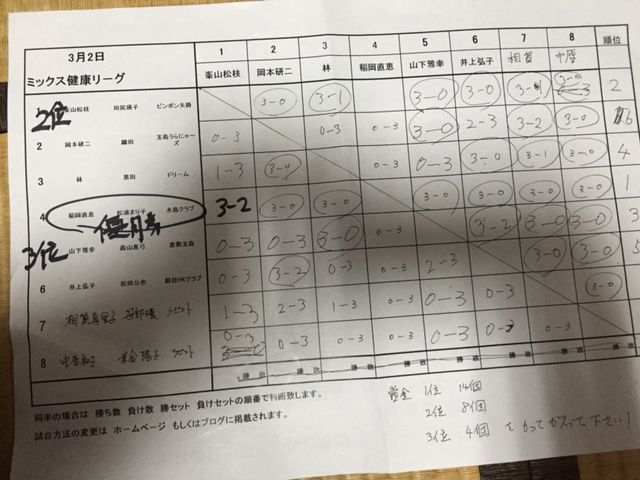 3月2日 1 2 3 4 5 6 7 8 順位
ミックス健康リーグ 峯山松枝 岡本研二 林 稲岡直恵 山下雅幸 井上弘子 相賀 中原
2位 峯山松枝 田尻陽子 ピンポン矢掛 3-0 3-1 3-0 3-0 3-1 3-0 2
2 岡本研二 織田 玉島うらにゃ~ズ 0-3 0-3 0-3 3-0 2-3 3-2 3-0 6
3 林 黒田 ドリーム 1-3 3-0 0-3 0-3 3-0 3-1 3-0 4
4 稲岡直恵 松浦まり子 水島クラブ 3-2 3-0 3-0 3-0 3-0 3-0 3-0 1
優勝
3位 山下雅幸 森山真弓 倉敷玉森 0-3 0-3 3-0 0-3 3-2 3-0 3-0 3
6 井上弘子 松田公也 総社HKクラブ 0-3 3-2 0-3 0-3 2-3 3-0 3-0 5
7 相賀 ラビット 1-3 2-3 1-3 0-3 0-3 0-3 3-0
8 中原 陽子 ラビット 0-3 0-3 0-3 0-3 0-3 0-3 0-3
勝 敗 勝 敗 勝 敗 勝 敗 勝 敗 勝 敗 勝 敗 勝 敗
同率の場合は 勝ち数 負け数 勝セット 負けセットの順番で判断致します。
試合方法の変更は ホームページ もしくはブログに掲載されます。
賞金 1位 14個
2位 8個
3位 4個 もって かえって 下さい!